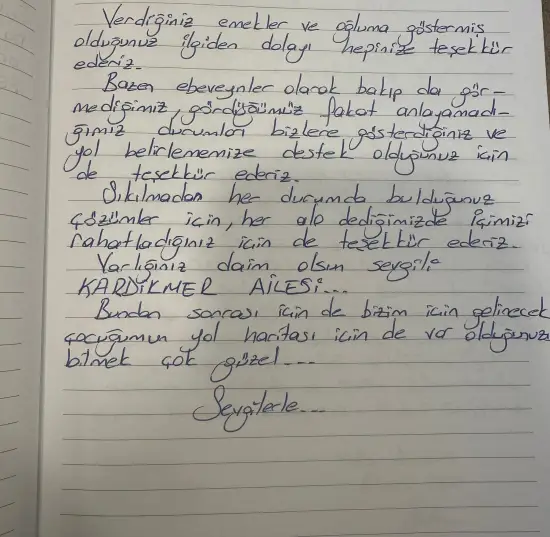 Verdiğiniz emekler ve oğluma göstermiş
olduğunuz ilgiden dolayı hepinize teşekkür
ederiz.
Bazen ebeveynler olarak bakıp da gör-
mediğimiz, gördüğümüz fakat anlayamadı-
ğımız durumları bizlere gösterdiğiniz ve
yol belirlememize destek olduğunuz için
de teşekkür ederiz.
Sıkılmadan her durumda bulduğunuz
çözümler için, her alo dediğimizde içimizi
rahatlattığınız için de teşekkür ederiz.
Varlığınız daim olsun sevgili
KARDİKMER AİLESİ...
Bundan sonrası için de bizim için gelinecek
çocuğumun yol haritası için de var olduğunuzu
bilmek çok güzel....
Sevgilerle...